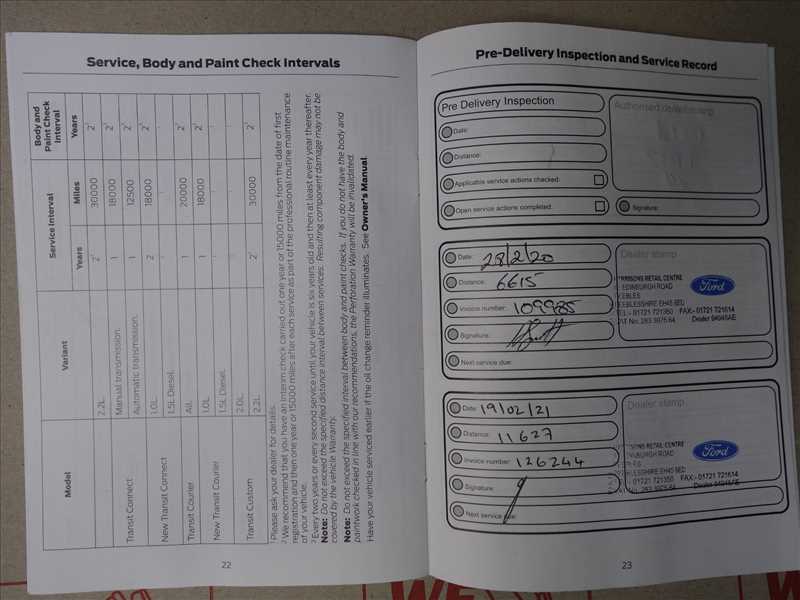 Service, Body and Paint Check Intervals
Model Variant Service Interval Body and Paint Check Interval
Years Miles Years
2.2L 2¹ 30000 2³
Transit Connect Manual transmission. 1 18000 2³
Automatic transmission. 1 12500 2³
New Transit Connect 1.0L 2 18000 2³
1.5L Diesel. - - -
Transit Courier All. 1 20000 2³
New Transit Courier 1.0L 1 18000 2³
1.5L Diesel. - - -
Transit Custom 2.0L - - -
2.2L 2² 30000 2³
¹ Please ask your dealer for details.
² We recommend that you have an Interim check carried out one year or 15000 miles from the date of first
registration and then one year or 15000 miles after each service as part of the professional routine maintenance
of your vehicle.
³ Every two years or every second service until your vehicle is six years old and then at least every year thereafter.
Note: Do not exceed the specified distance interval between services. Resulting component damage may not be
covered by the vehicle Warranty.
Note: Do not exceed the specified interval between body and paint checks. If you do not have the body and
paintwork checked in line with our recommendations, the Perforation Warranty will be invalidated.
Have your vehicle serviced earlier if the oil change reminder illuminates. See Owner's Manual
22
Pre-Delivery Inspection and Service Record
Pre Delivery Inspection
Date:
Distance:
Applicable service actions checked:
Open service actions completed:
Signature:
Date: 28/2/20
Distance: 6615
Invoice number: 109985
Signature:
Next service due:
Dealer stamp
RETAIL CENTRE
EDINBURGH ROAD
EEBLES
EEBLESSHIRE EH45 8ED
TEL - 01721 721350 FAX:- 01721 721514
VAT No. 283 3975 64 Dealer 94045AE
Ford
Date 19/02/21
Distance: 11627
Invoice number: 126244
Signature:
Next service due:
Dealer stamp
RETAIL CENTRE
NBURGH ROAD
BLESSHIRE EH45 8ED
01721 721350 FAX:- 01721 721514
283 3975 64 Dealer 94045AE
Ford
23